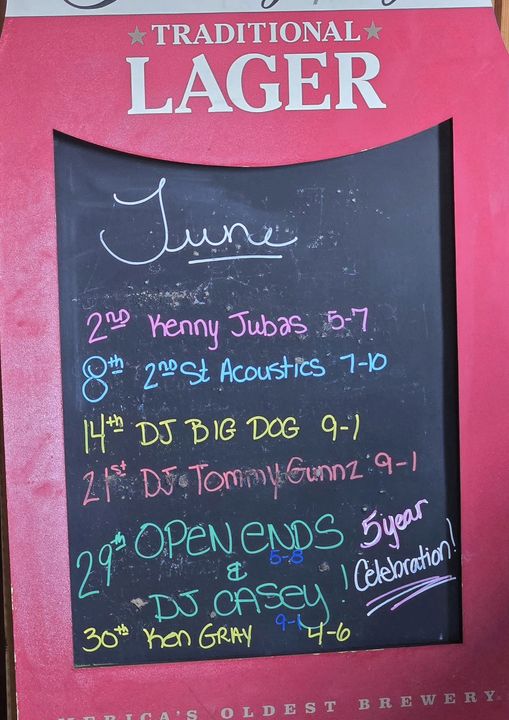 TRADITIONAL
LAGER
June
2nd Kenny Jubas 5-7
8th 2nd St Acoustics 7-10
14th DJ BIG DOG 9-1
21st DJ Tommy Gunnz 9-1
29th OPEN ENDS 5-8
&
DJ CASEY! 9-1
5 year
Celebration!
30th Ken GRAY 4-6
AMERICA'S OLDEST BREWERY